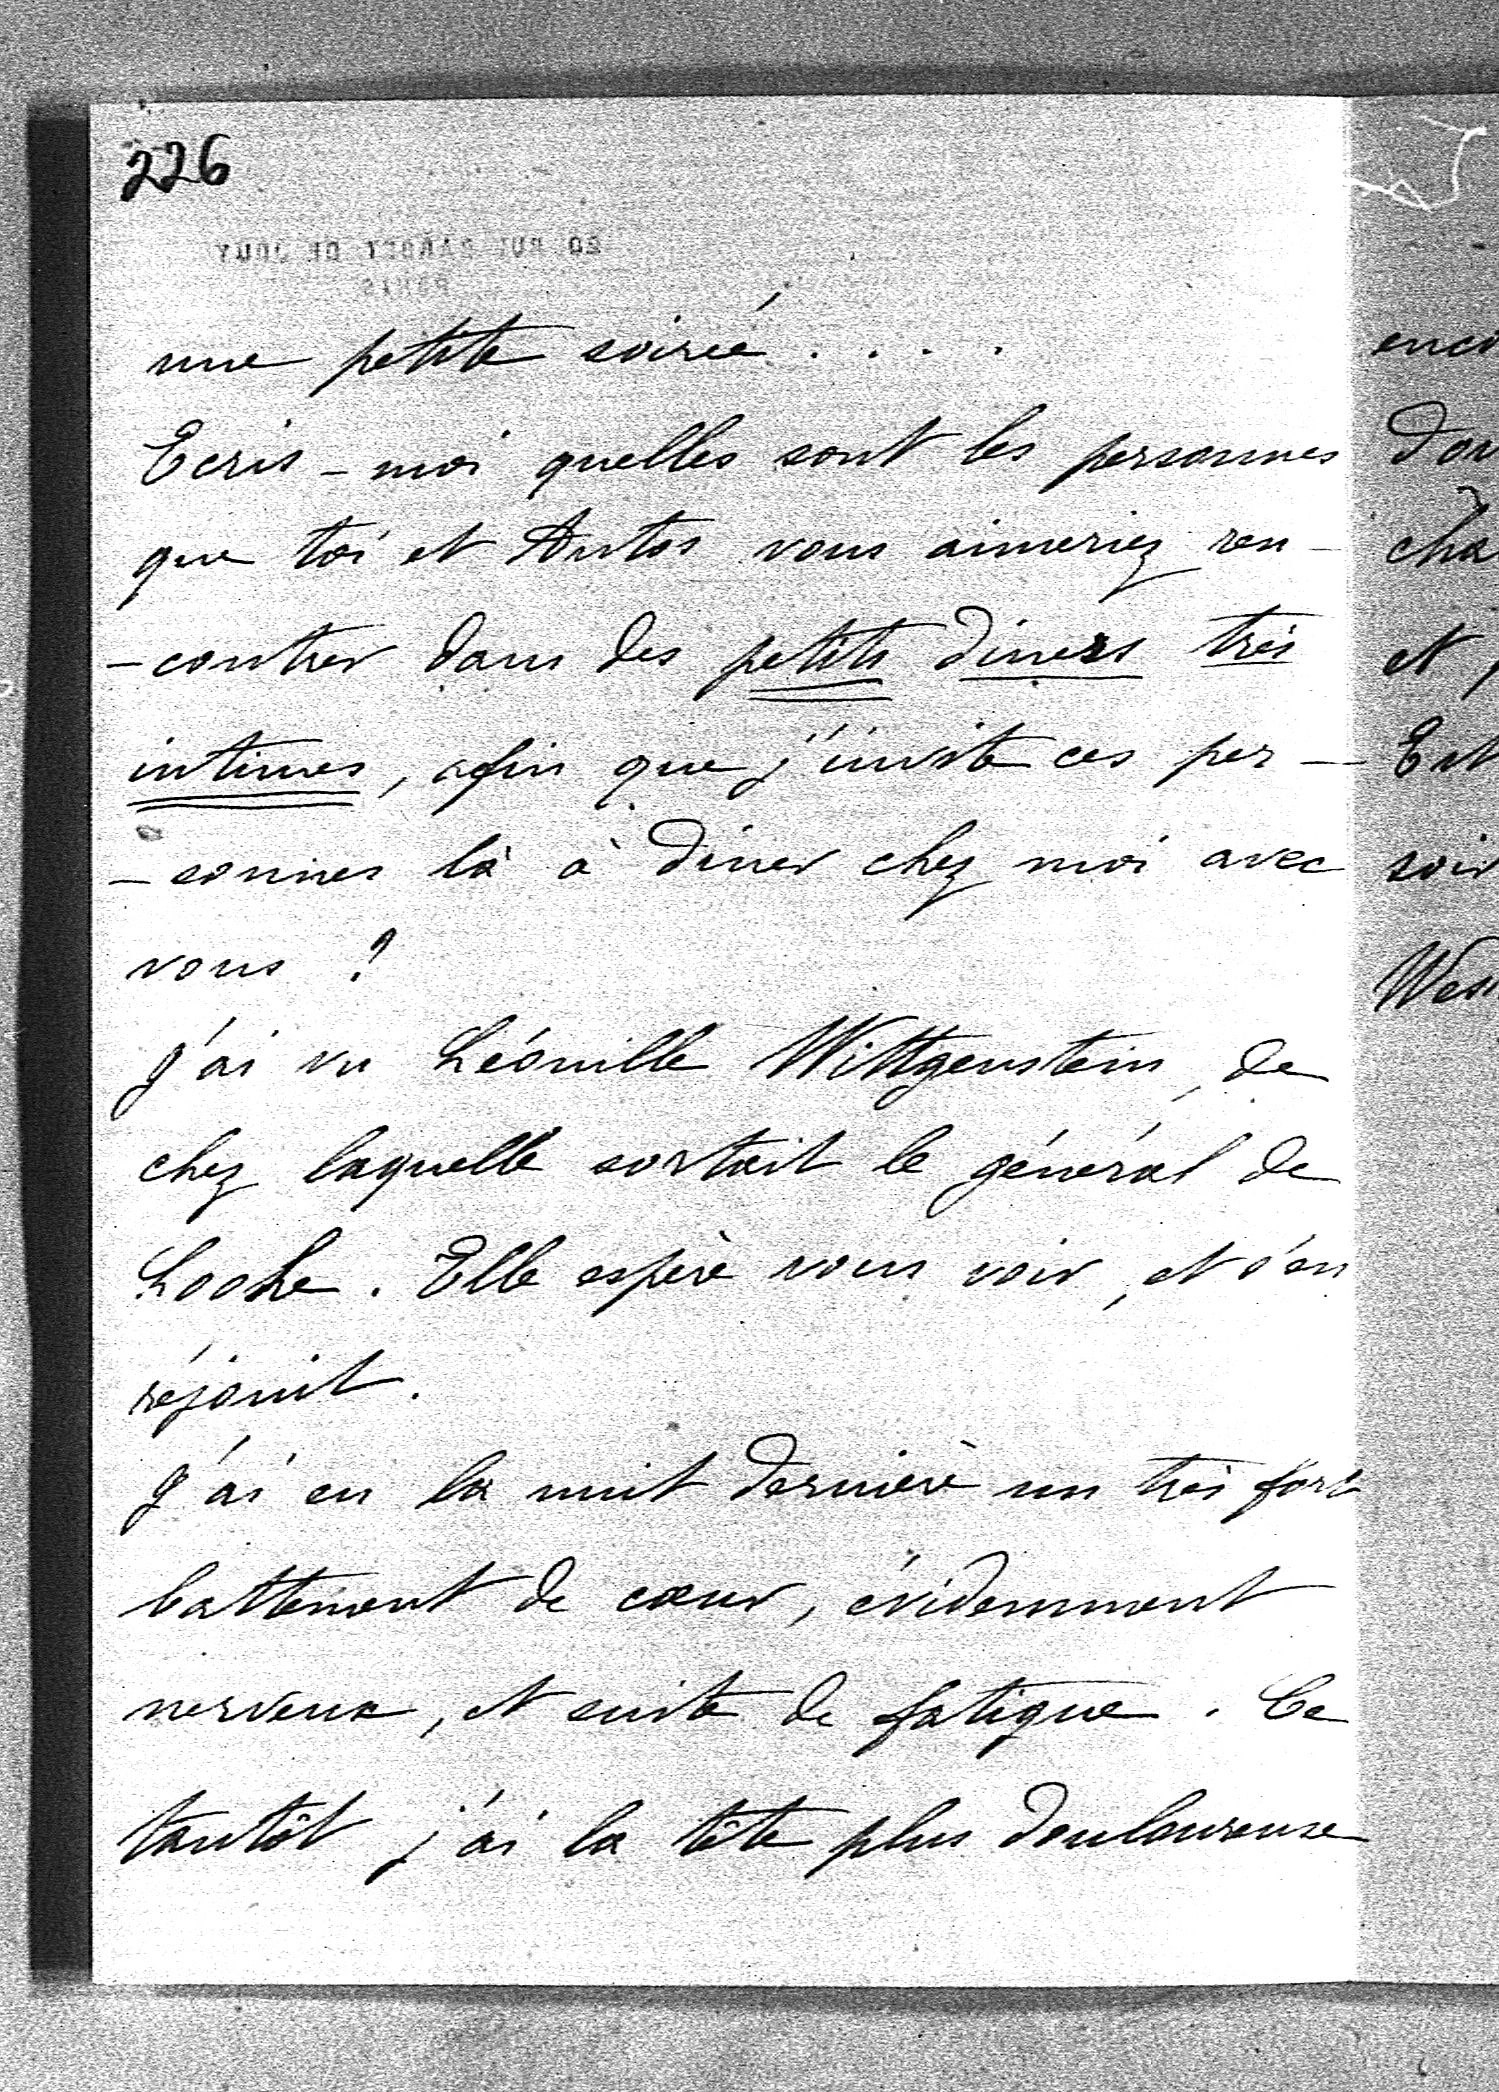 226
20 RUE BARBET DE JOUY
PARIS
une petite soirée . . . .
Ecris-moi quelles sont les personnes
que toi et Antos vous aimeriez ren-
-contrer dans des petits diners très
intimes, afin que j'invite ces per-
-sonnes là à diner chez moi avec
vous ?
J'ai vu Léonille Wittgenstein, de
chez laquelle sortait le général de
Looke. Elle espère vous voir, et s'en
réjouit.
J'ai eu la nuit dernière un très fort
battement de cœur, évidemment
nerveux, et suite de fatigue. Ce
tantôt j'ai la tête plus douloureuse
enco
cha
et
soir